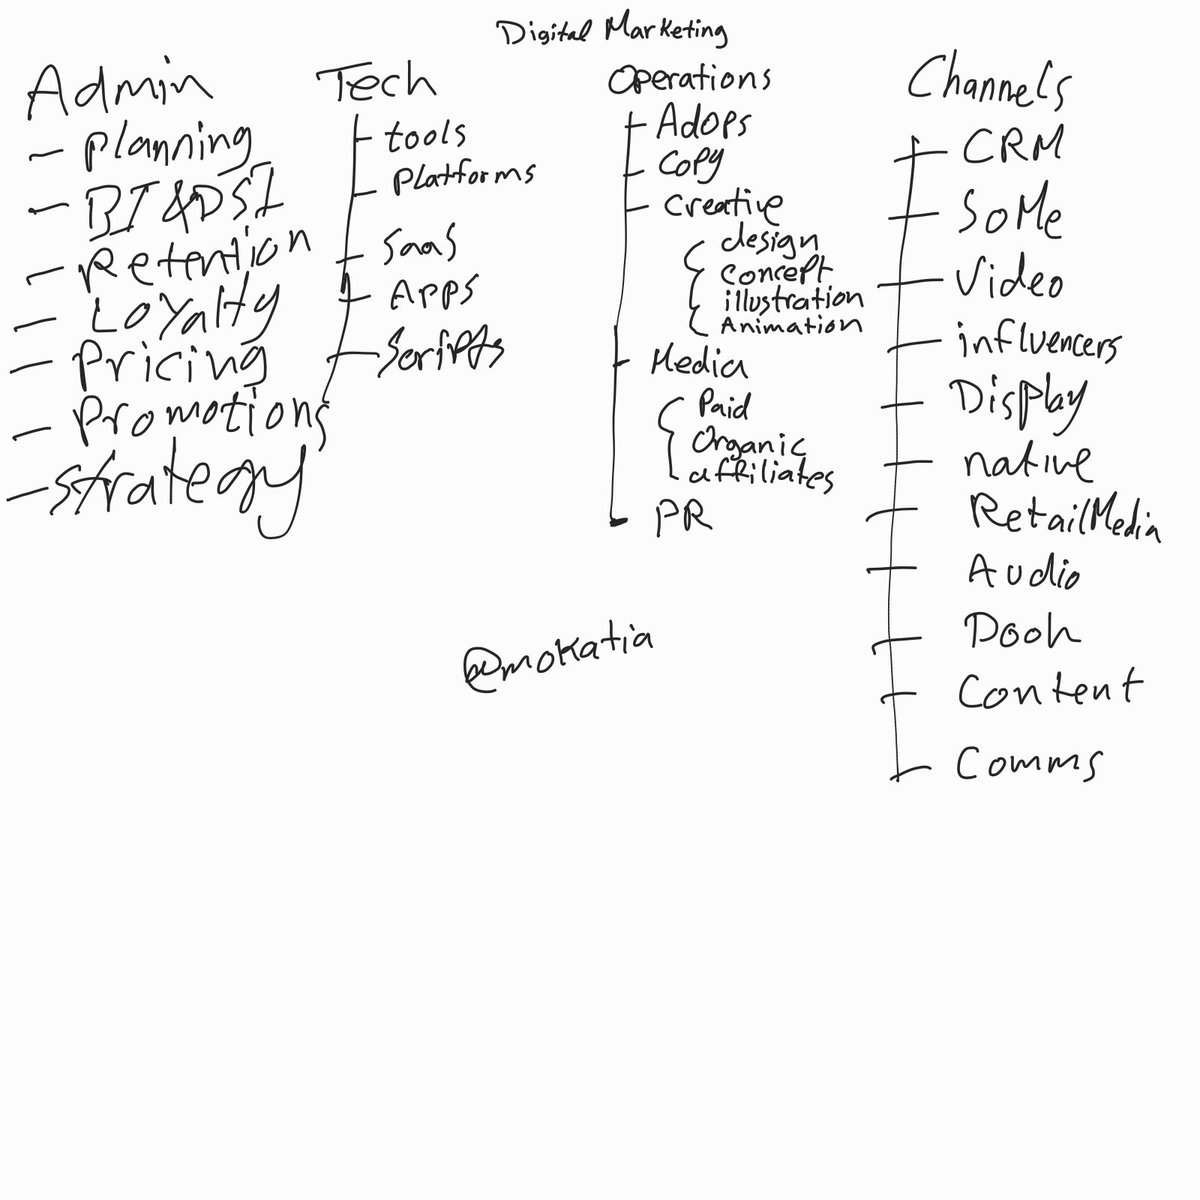 Digital Marketing
Admin
- Planning
- BI & DSI
- Retention
- Loyalty
- Pricing
- Promotions
- strategy
Tech
tools
Platforms
SaaS
Apps
Scripts
Operations
Adops
Copy
Creative
design
concept
illustration
Animation
Media
Paid
Organic
affiliates
PR
Channels
CRM
SoMe
Video
influencers
Display
native
Retail Media
Audio
Dooh
Content
Comms
@mokatia